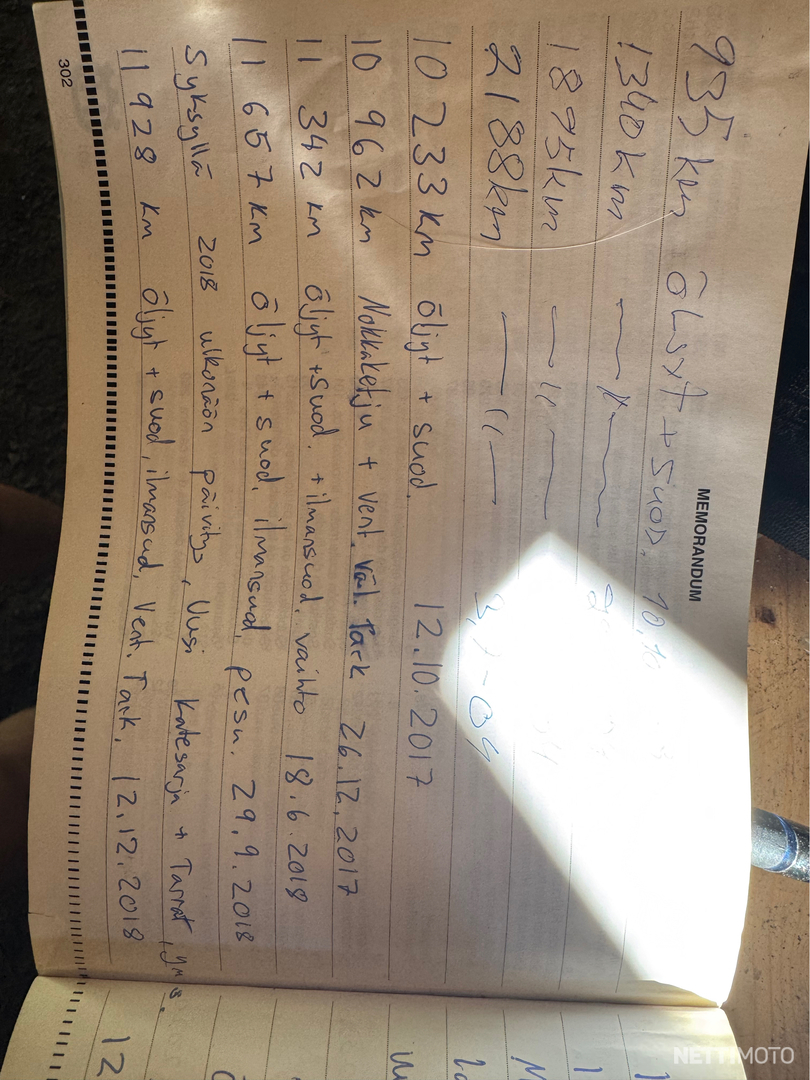 MEMORANDUM
935 km öLJyt + Suod.
1340 km —〃—
1875 km —〃—
2188 km —〃— 3.7-04
10 233 km öljyt + suod. 12.10.2017
10 962 km Nokkaketju + vent. väl. Tark 26.12.2017
11 342 km öljyt + suod. + ilmansuod. vaihto 18.6.2018
11 657 km öljyt + suod, ilmansuod, pesu. 29.9.2018
Syksyllä 2018 ulkonäön päivitys, Uusi katesarja + Tarrat, yms.
11 928 km öljyt + suod, ilmansuod, Vent. Tark. 12.12.2018
302
12
NETTIMOTO